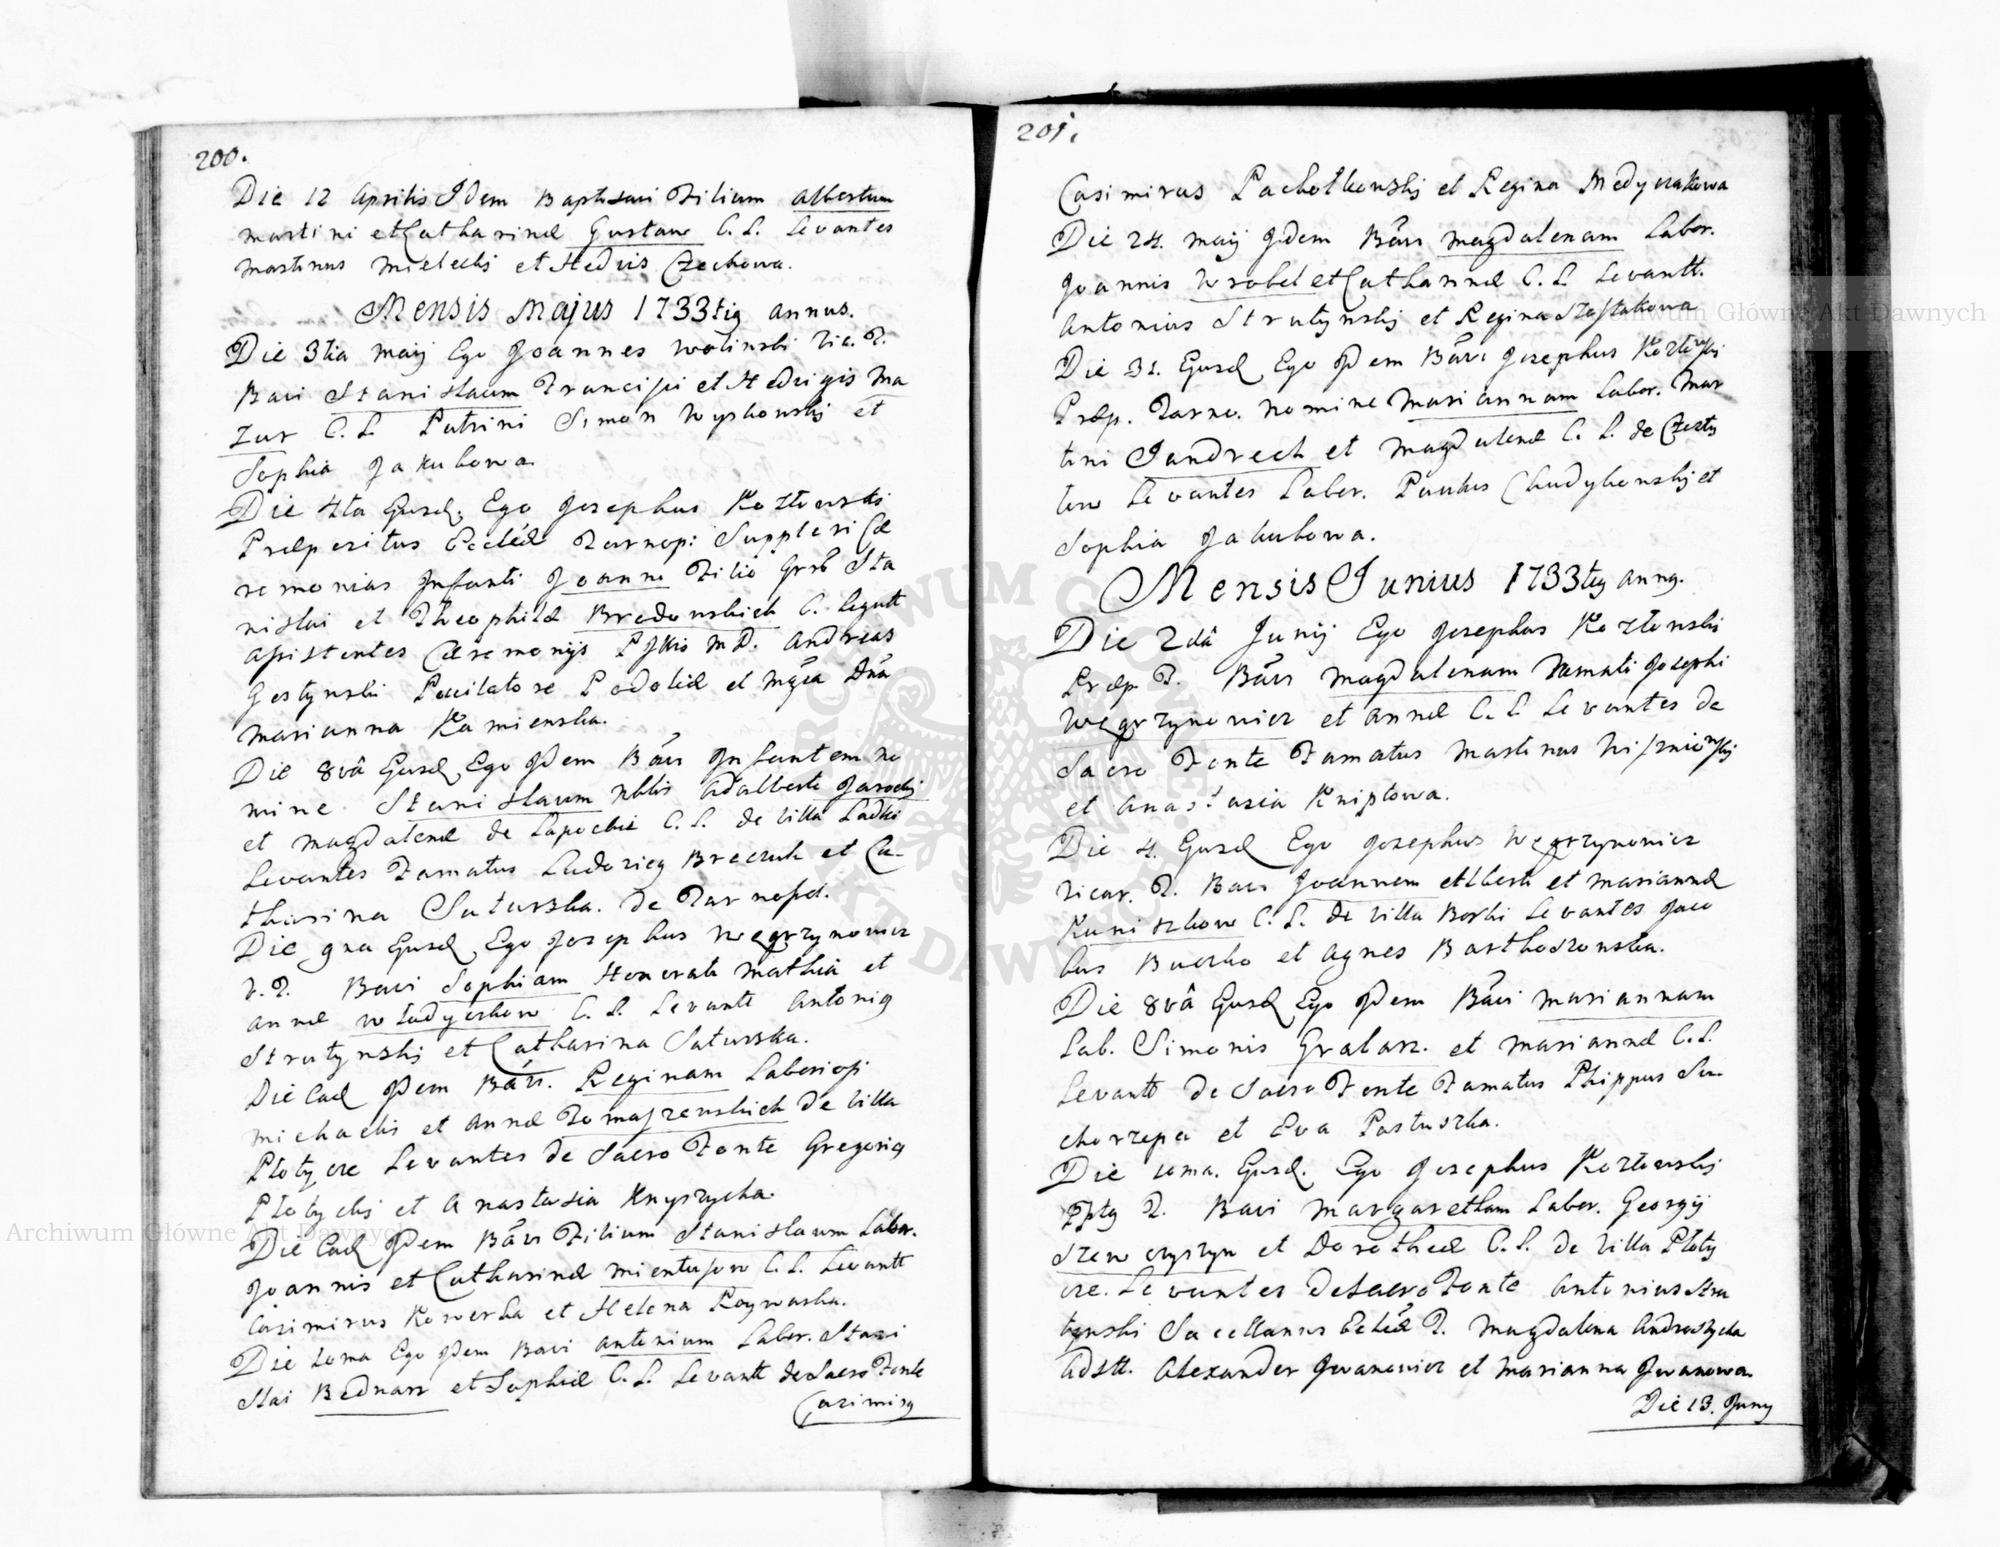 200.
Die 12 Aprilis Idem Baptisavi Filium Albertum
Martini et Catharinæ Gustaw C. L. Levantes
Martinus Mielecki et Hedvis Czechowa.
Mensis Majus 1733tig annus.
Die 3tia Maij Ego Joannes Wolinski Vic. T.
Bavi Stanislaum Francisci et Hedvigis Ma
zur C. L. Patrini Simon Wyskowskj et
Sophia Jakubowa
Die 4ta Ejusd. Ego Josephus Kozlowski
Præpositus Eccleæ Tarnop: Supplevi Cæ
remonias Infanti Joanne Filio Grsb Sta
nislai et Theophilæ Bredowskich C. Legutt
Assistentes Cæremonijs M D. Andreas
Gostynski Pocilatore Podoliæ et Mgca Dna
Marianna Kamienska.
Die 8vâ Ejusd Ego Idem Bavi Infantem no
mine Stanislaum Nblis Adalberti Jarockj
et Magdalenæ de Lapockie C. L. de Villa Ladki
Levantes Famatus Ludovicq Breczuk et Ca-
tharina Saturska. de Tarnopol.
Die 9na Ejusd Ego Josephus Wegrzynowicz
V. T. Bavi Sophiam Honorati Mathia et
Annæ Wladyczkow C. L. Levantt Antoniq
Strutynskj et Catharina Saturska.
Die Ead Idem Bavi. Reginam Laboriosi
Michaelis et Annæ Tomaszewskich de Villa
Plotycze Levantes de Sacro Fonte Gregoriq
Plotyckj et Anastasia Knyszycha.
Die Ead Idem Bavi Filium Stanislaum Labor.
Joannis et Catharinæ Mientusow C. L. Levantt
Casimirus Kowerda et Helena Roywaska.
Die 10ma Ego Idem Bavi Antonium Labor. Stani
slai Bednarz et Sophiæ C. L. Levantt de Sacro Fonte
Casimirq
201.
Casimirus Pacholkowskj et Regina Medyczakowa
Die 24. Maij Idem Bavi Magdalenam Labor.
Joannis Wrobel et Catharinæ C. L. Levantt.
Antonius Strutynskj et Regina Szostakowa
Die 31. Ejusd Ego Idem Bavi Josephus Kozlowskj
Præp. Tarno. Nomine Mariannam Labor. Mar
tini Jandrech et Magdalenæ C. L. de Czesty
low Levantes Labor. Paulus Chudykowskj et
Sophia Jakubowa.
Mensis Junius 1733tig annq.
Die 2dâ Junij Ego Josephus Kozlowski
Præp. T. Bavi Magdalenam Famati Josephi
Wegrzynowicz et Annæ C. L. Levantes de
Sacro Fonte Famatus Martinus Wiszniowskj
et Anastazia Kniptowa.
Die 4. Ejusd Ego Josephus Wegrzynowicz
Vicar. T. Bavi Joannem Alberti et Mariannæ
Kuniszkow C. L. de Villa Borki Levantes Jaco
bus Buczko et Agnes Barthoszowska.
Die 8vâ Ejusd Ego Idem Bavi Mariannam
Lab. Simonis Gralarz. et Mariannæ C. L.
Levantt de Sacro Fonte Famatus Phippus Su-
chorzepa et Eva Pastuszka.
Die 10ma. Ejusd. Ego Josephus Kozlowskj
Pptq T. Bavi Margaretham Labor. Georgij
Szewczyszyn et Dorotheæ C. L. de Villa Ploty
cze. Levantes de Sacro Fonte Antonius Stru
tynski Sacellanus Ecleæ T. Magdalena Andrzeycha
Adstt. Alexander Jwanowicz et Marianna Jwanowa.
Die 13. Juny
Archiwum Główne Akt Dawnych
Archiwum Główne Akt Dawnych
ARCHIWUM GŁÓWNE AKT DAWNYCH